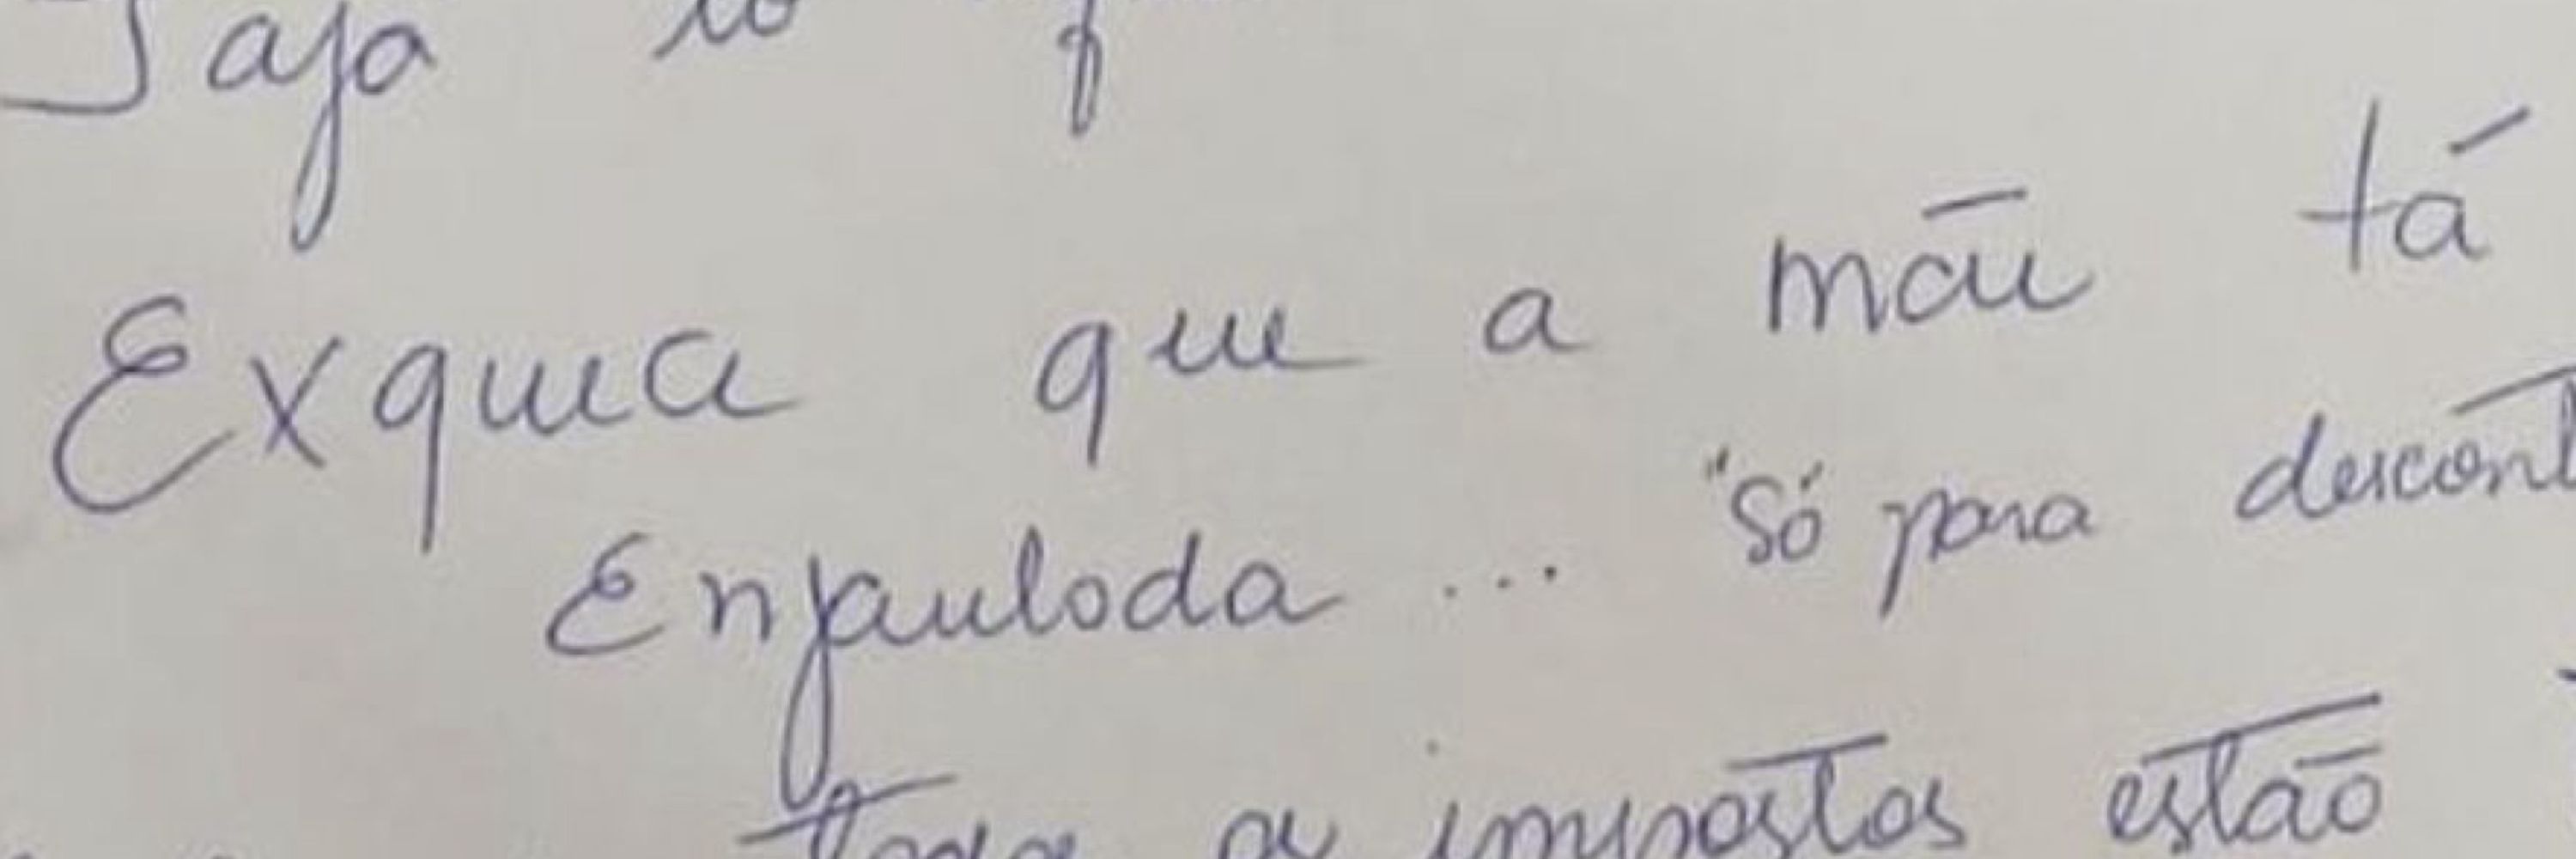 Jaja
Exquea que a mãe tá
Enjaulada ... "Só para descont
os impostos estão